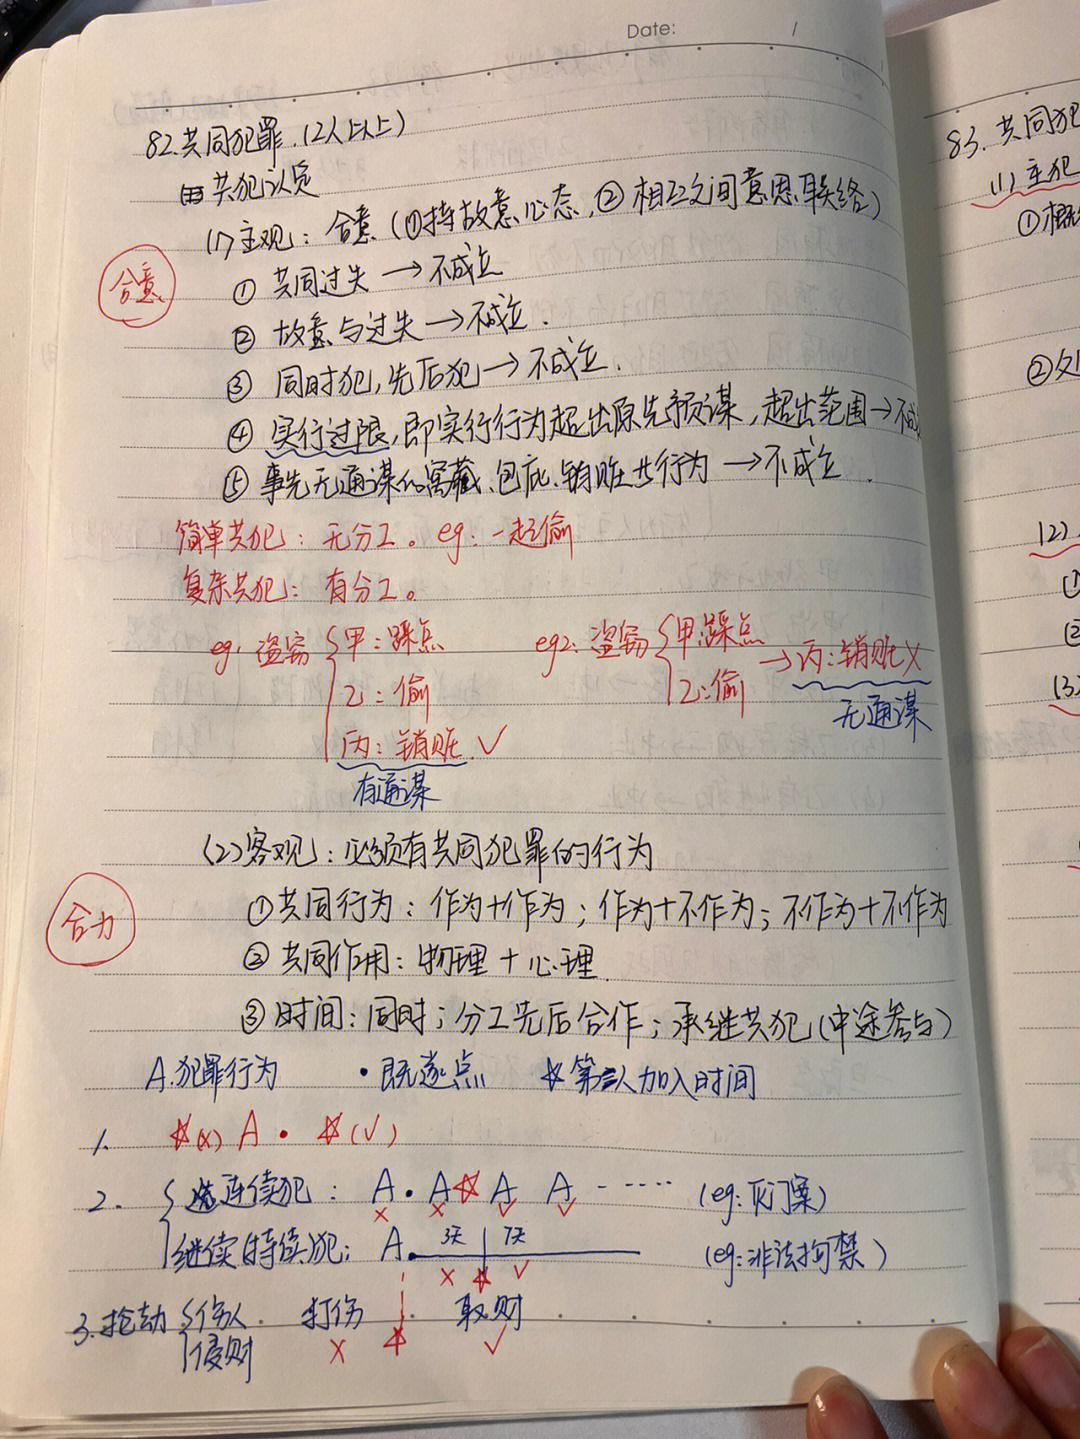 Date: /
82.共同犯罪.(2人以上)
共犯认定
(1)主观：合意(①持故意心态,②相互之间意思联络)
合意
① 共同过失→不成立
② 故意与过失→不成立.
③ 同时犯,先后犯→不成立.
④ 实行过限,即实行行为超出原先预谋,超出范围→不成
⑤ 事先无通谋的窝藏、包庇、销赃些行为→不成立.
简单共犯：无分工。eg：一起偷
复杂共犯：有分工。
eg：盗窃 甲：踩点 eg2：盗窃 甲:踩点
乙：偷 乙:偷 →丙：销赃X
丙：销赃 √ 无通谋
有通谋
(2)客观：必须有共同犯罪的行为
合力
①共同行为：作为+作为；作为+不作为；不作为+不作为
② 共同作用：物理+心理
③时间：同时；分工先后合作；承继共犯(中途参与)
A.犯罪行为 ·既遂点 ☆第二人加入时间
1. ☆(x) A · ☆(√)
2. 连续犯：A·A☆A A ----- (eg:灭门案)
x x √ √
继续(持续)犯：A 3天 7天 (eg:非法拘禁)
x ☆ √
3.抢劫 伤人 打伤 取财
侵财 x ☆ √
83.共同犯
(1)主犯
①概
②
(2)
①
②
(3)